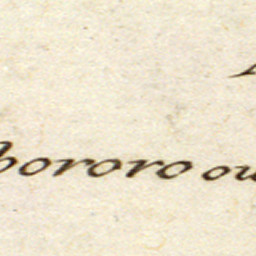 bororo ou